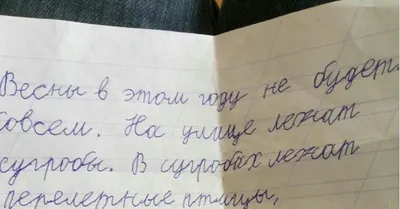 Весны в этом году не будет
совсем. На улице лежат
сугробы. В сугробах лежат
перелетные птицы,